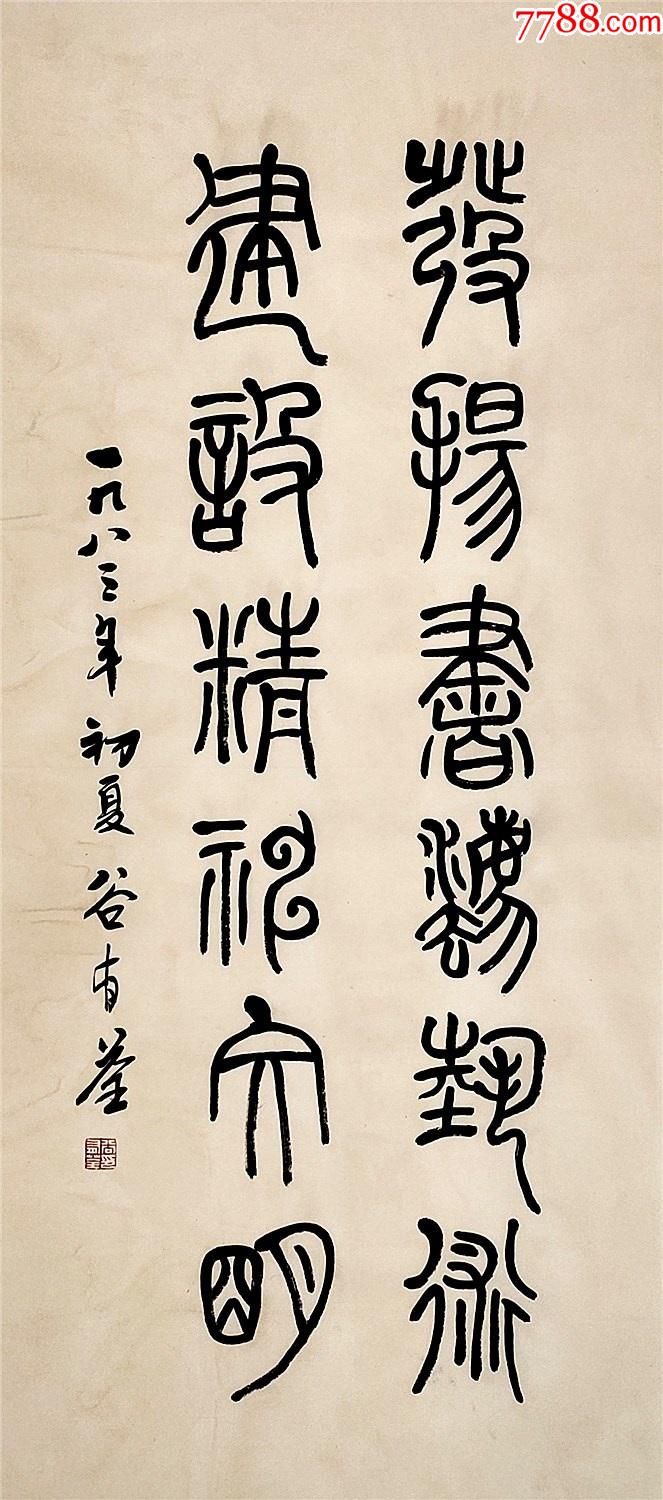 7788.com
發揚書灋埶術
建設精神文明
一九八三年初夏谷有荃